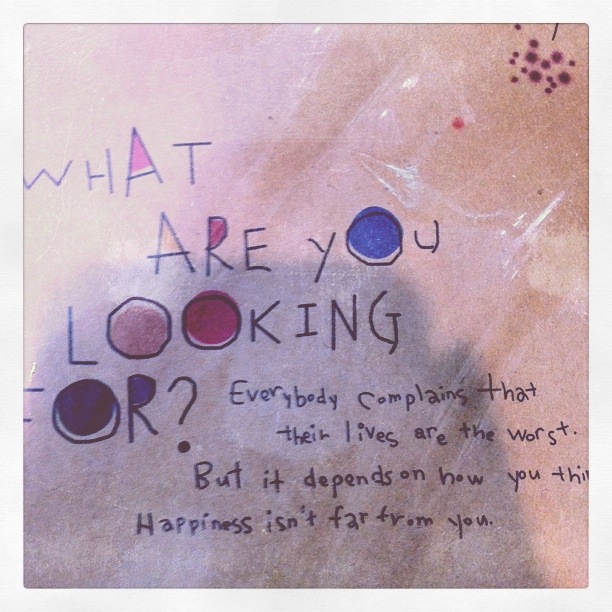 WHAT
ARE YOU
LOOKING
FOR?
Everybody complains that
their lives are the worst.
But it depends on how you thi
Happiness isn't far from you.